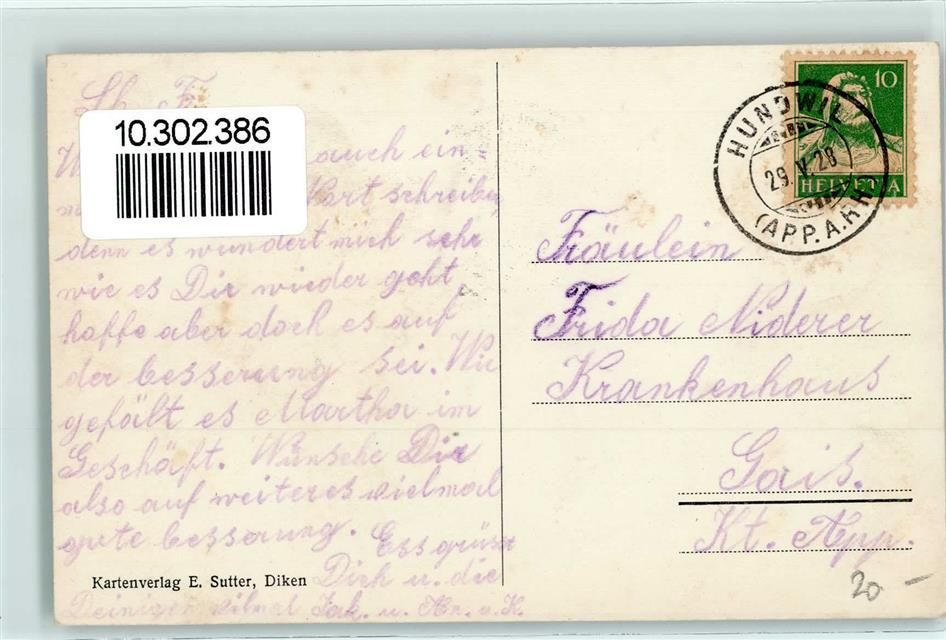 Lb. F.
10.302.386
auch ein=
Wort schreiben
denn es wundert mich sehr
wie es Dir wieder geht
hoffe aber doch es auf
der besserung sei. Wie
gefält es Martha im
Geschäft. Wünsche Dir
also auf weiteres vielmal
gute besserung. Ess grüsst
Dich u. die
Deinigen vilmal Jak. u.
Kartenverlag E. Sutter, Diken
10
HELVETIA
HUNDWIL
29. V. 28
(APP. A. RH.)
Fräulein
Frida Niderer
Krankenhaus
Gais.
Kt. App.
20 –